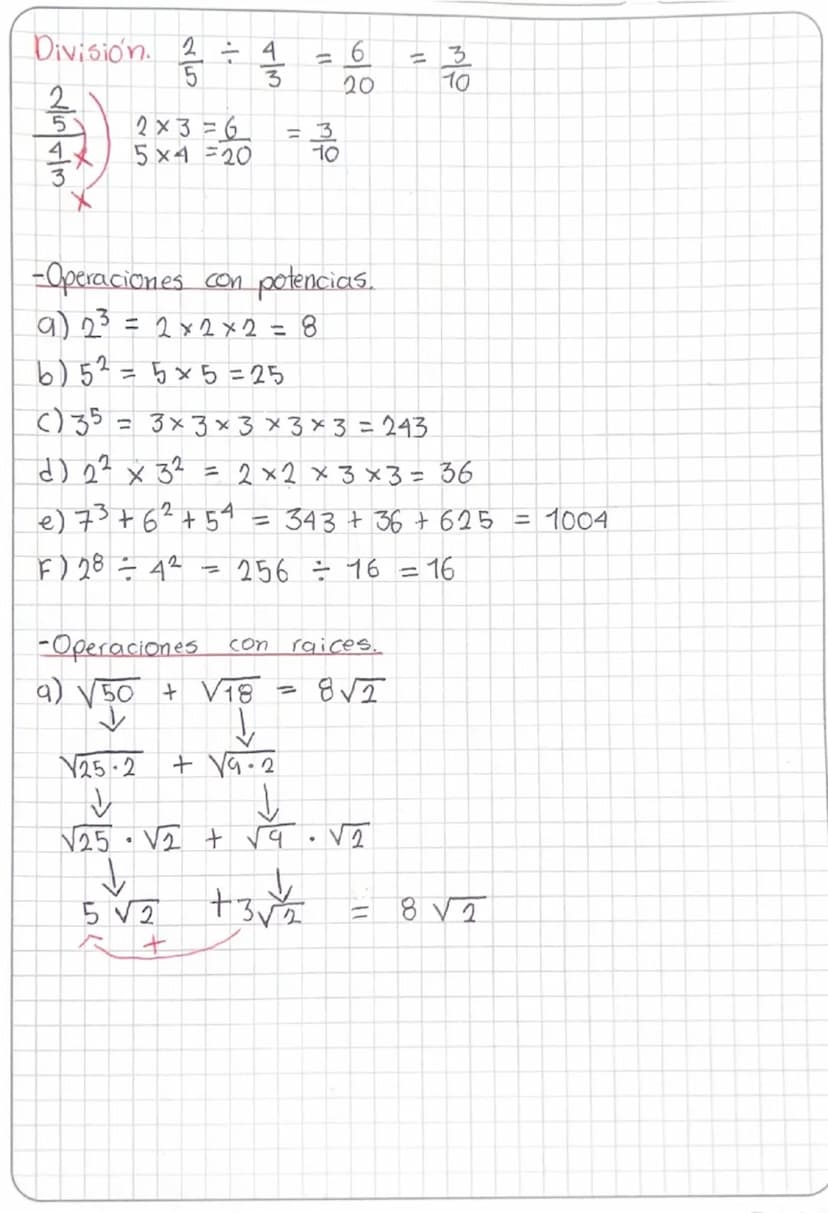 División. 2/5 ÷ 4/3 = 6/20 = 3/10
2/5 / 4/3 2 × 3 = 6 / 5 × 4 = 20 = 3/10
x
x
-Operaciones con potencias.
a) 2³ = 2 × 2 × 2 = 8
b) 5² = 5 × 5 = 25
c) 3⁵ = 3 × 3 × 3 × 3 × 3 = 243
d) 2² × 3² = 2 × 2 × 3 × 3 = 36
e) 7³ + 6² + 5⁴ = 343 + 36 + 625 = 1004
F) 2⁸ ÷ 4² = 256 ÷ 16 = 16
-Operaciones con raices.
a) √50 + √18 = 8√2
↓ ↓
√25·2 + √9·2
↓ ↓
√25 · √2 + √9 · √2
↓ ↓
5√2 + 3√2 = 8√2
+